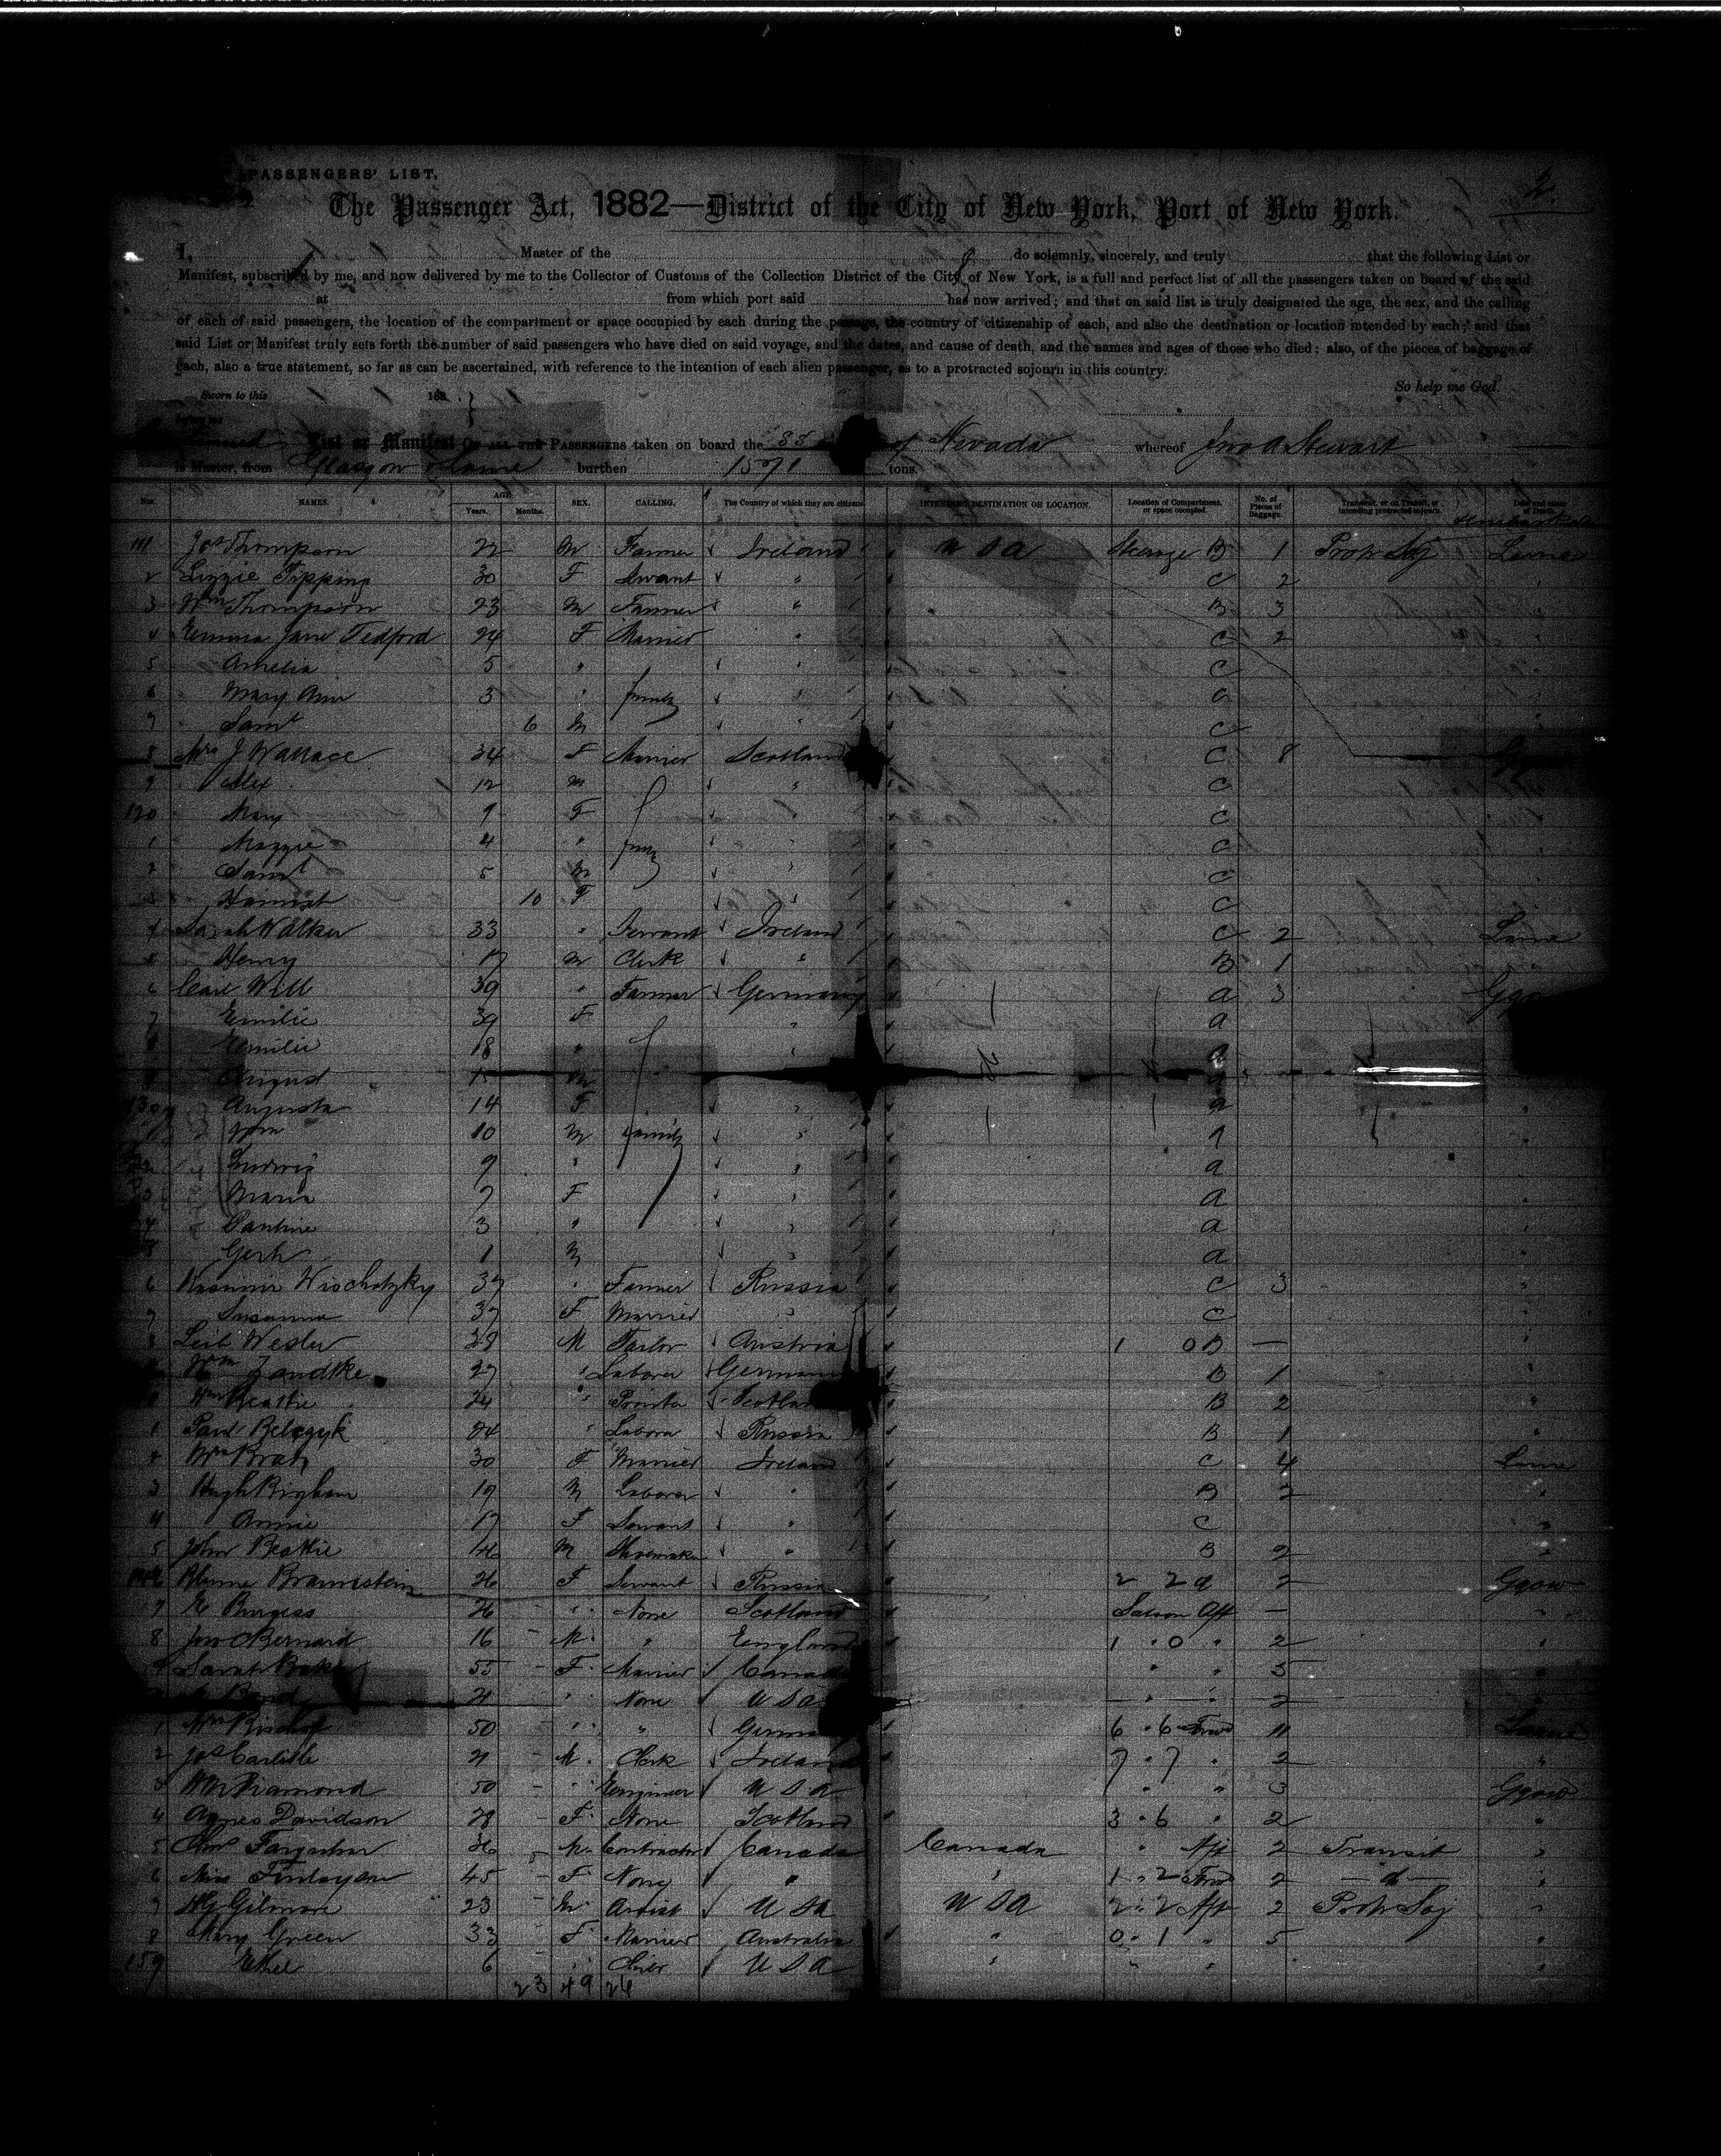 PASSENGERS' LIST. 2.
The Passenger Act, 1882—District of the City of New York, Port of New York.
I, Master of the do solemnly, sincerely, and truly that the following List or
Manifest, subscribed by me, and now delivered by me to the Collector of Customs of the Collection District of the City of New York, is a full and perfect list of all the passengers taken on board of the said
at from which port said has now arrived; and that on said list is truly designated the age, the sex, and the calling
of each of said passengers, the location of the compartment or space occupied by each during the passage, the country of citizenship of each, and also the destination or location intended by each; and that
said List or Manifest truly sets forth the number of said passengers who have died on said voyage, and the dates, and cause of death, and the names and ages of those who died; also, of the pieces of baggage of
each, also a true statement, so far as can be ascertained, with reference to the intention of each alien passenger, as to a protracted sojourn in this country.
So help me God.
Sworn to this 188
before me
List or Manifest OF ALL THE PASSENGERS taken on board the SS of Nevada whereof Jno A Stewart
is Master, from Glasgow & Larne burthen 1571 tons.
Nos. NAMES. AGE Years. Months. SEX. CALLING. The Country of which they are citizens. INTENDING DESTINATION OR LOCATION. Location of Compartment, or space occupied. No. of Pieces of Baggage. Transient, or in Transit, or intending protracted sojourn. Date and cause of Death.
111 Jos Thompson 22 M Farmer Ireland U S A Steerage B 1 Protr Soj Larne
2 Lizzie Tipping 30 F Servant " C 2
3 Wm Thompson 23 M Farmer " B 3
4 Emma Jane Tedford 24 F Married " C 2
5 Amelia 5 " " C
6 Mary Ann 3 " family " C
7 Saml 6 M " C
8 Mrs J Wallace 34 F Married Scotland C 8
9 Alex 12 M " C
120 Mary 9 F C
1 Maggie 4 " family " C
2 Saml 5 M " C
3 10 F " C
4 Sarah Walker 33 " Servant Ireland C 2 Larne
5 Henry 17 M Clerk " B 1
6 Carl Will 39 " Farmer Germany a 3 Ggow
7 Emilie 39 F " a
8 Emilie 18 " " a
9 August M
130 Augusta 14 F " a
10 M family " a
Ludwig 9 " " a
3 Maria 7 F " a
4 Pauline 3 " " a
5 1 M " a
6 Wischotzky 37 " Farmer Russia C 3
7 Susanna 37 F Married " C
8 Leib Wesler 38 M Tailor Austria 1 0 B —
Wm Zandtke 27 " Laborer Germany B 1
Wm Beattie 24 " Printer Scotland B 2
1 Paul Belczyk 24 " Laborer Russia B 1
2 30 F Married Ireland C 4 Larne
3 Hugh Brigham 19 M Laborer " B 2
4 Annie 17 F Servant " C
5 John Beattie M Shoemaker " B 2
146 Blume Braunstein 26 F Servant Russia 2 2 a 2 Ggow
7 E Burgess 26 " None Scotland Saloon Aft —
8 Jno Bernard 16 M " England 1 " 0 " 2
9 Sarah 55 F Married Canada " " 5
21 " None U S A 2
1 50 " " Germany 6 " 6 Forwd 11 Larne
2 Jos Carlisle 21 M Clerk Ireland 7 " 7 " 2
3 Diamond 50 " Engineer U S A " " 3 Ggow
4 Agnes Davidson 28 F None Scotland 3 " 6 " 2
5 Farquhar 26 M Contractor Canada Canada " Aft 2 Transit
6 Miss Finlayson 45 F None " " 1 " 2 Forwd 2 — d —
7 H G Gilmore 23 M Artist U S A U S A 2 " 2 Aft 2 Protr Soj
8 Mary Green 33 F Married Australia " 0 " 1 " 5
159 Ethel 6 " Child U S A " " "
23 49 26